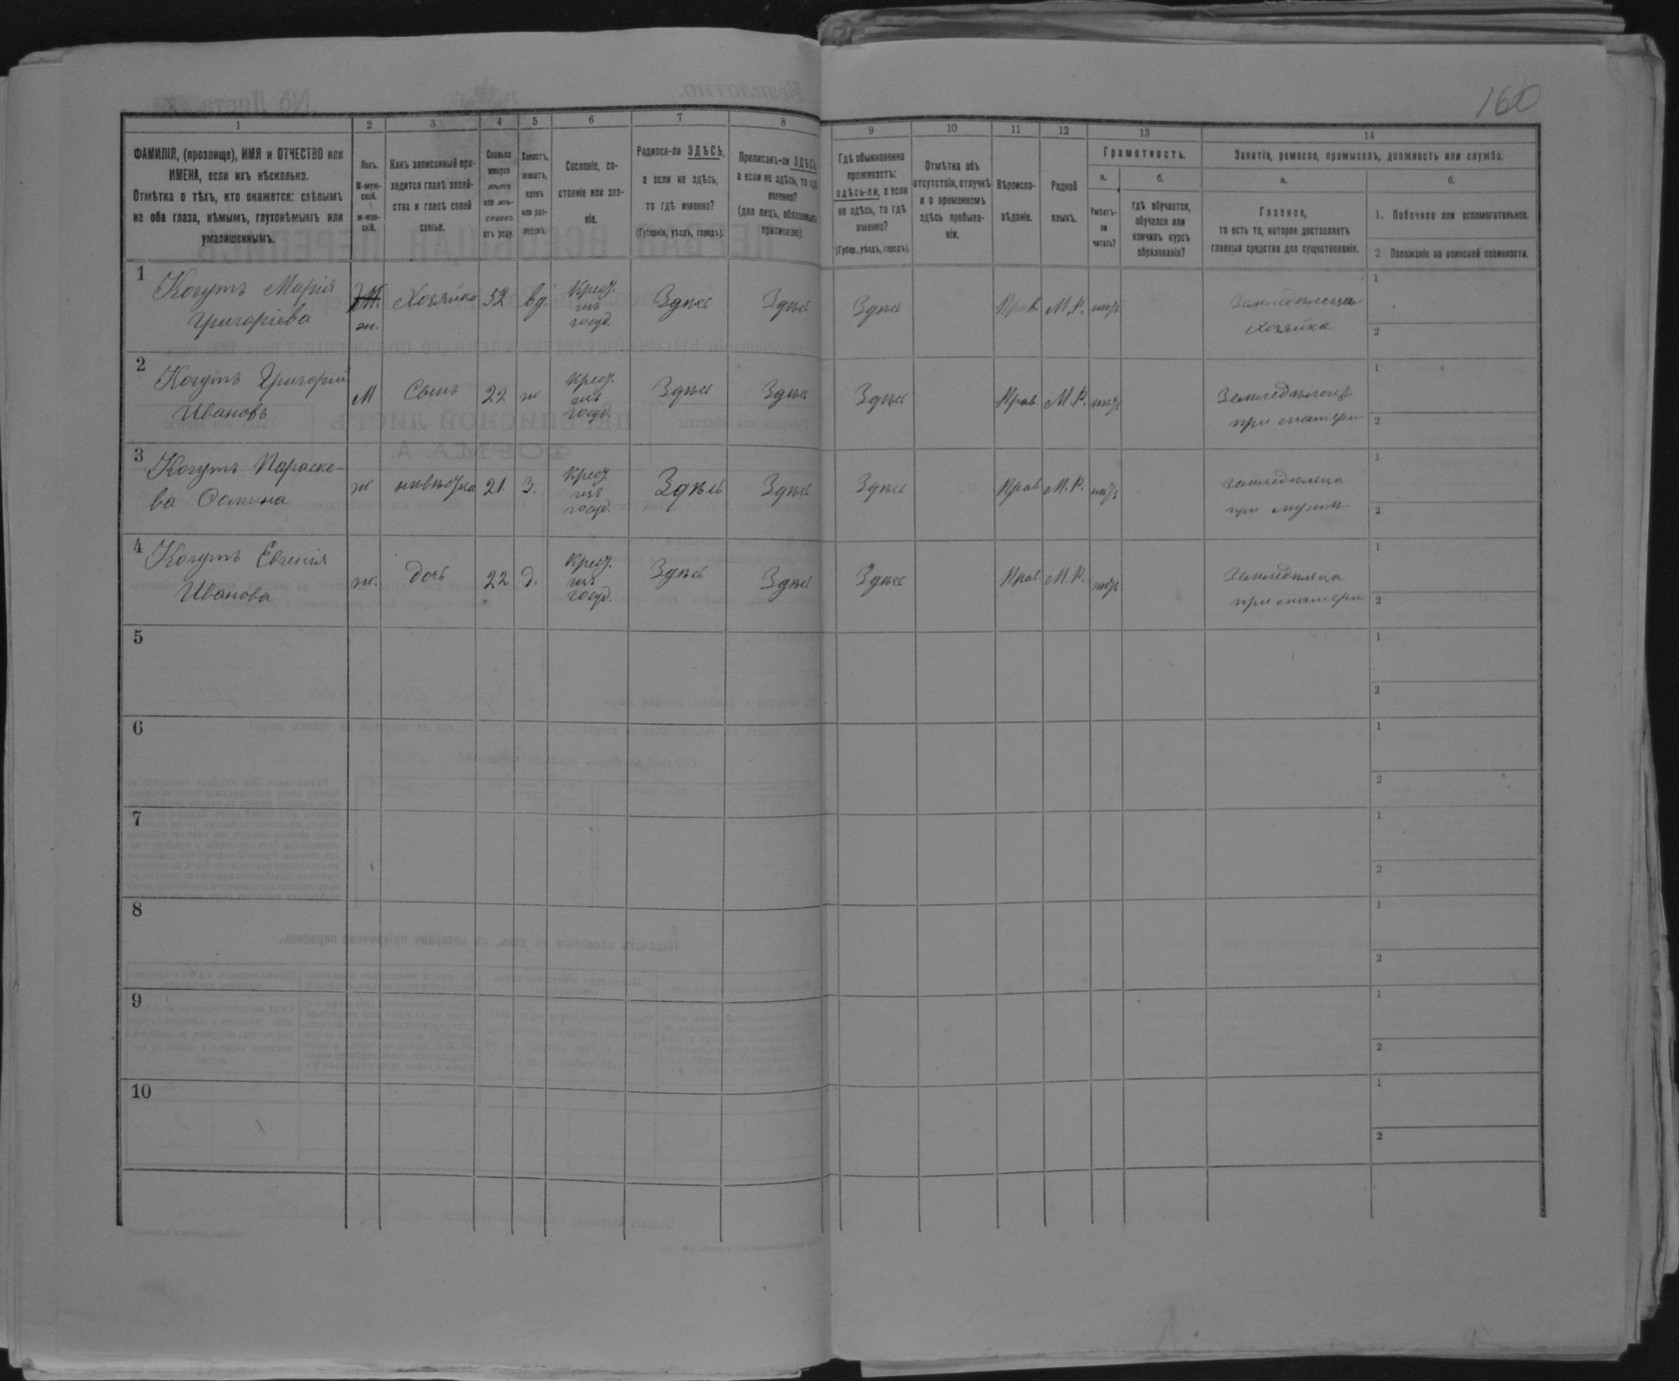 160
1
2
3
4
5
6
7
8
9
10
11
12
13
14
ФАМИЛІЯ, (прозвище), ИМЯ и ОТЧЕСТВО или
ИМЕНА, если ихъ нѣсколько.
Отмѣтка о тѣхъ, кто окажется: слѣпымъ
на оба глаза, нѣмымъ, глухонѣмымъ или
умалишеннымъ.
Полъ.
М-муж-
ской.
ж-жен-
скій.
Какъ записанный при-
ходится главѣ хозяй-
ства и главѣ своей
семьи.
Сколько
минуло
лѣтъ
или мѣ-
сяцевъ
отъ роду.
Холостъ,
женатъ,
вдовъ
или раз-
веденъ.
Сословіе, со-
стояніе или зва-
ніе.
Родился-ли ЗДѢСЬ,
а если не здѣсь,
то гдѣ именно?
(Губернія, уѣздъ, городъ).
Приписанъ-ли ЗДѢСЬ,
а если не здѣсь, то гдѣ
именно?
(для лицъ, обязанныхъ
припискою).
Гдѣ обыкновенно
проживаетъ:
здѣсь-ли, а если
не здѣсь, то гдѣ
именно?
(Губер., уѣздъ, городъ).
Отмѣтка объ
отсутствіи, отлучкѣ
и о временномъ
здѣсь пребыва-
ніи.
Вѣроиспо-
вѣданіе.
Родной
языкъ.
Грамотность.
а.
Умѣетъ-
ли
читать?
б.
Гдѣ обучается,
обучался или
кончилъ курсъ
образованія?
Занятіе, ремесло, промыселъ, должность или служба.
а.
Главное,
то есть то, которое доставляетъ
главныя средства для существованія.
б.
1. Побочное или вспомогательное.
2 Положеніе по воинской повинности.
1 Когутъ Марія
Григоріева
ж. Хозяйка 52 вд. Крест. изъ госуд. Здѣсь Здѣсь Здѣсь Прав. М.Р. нѣтъ Земледѣлица
хозяйка
1
2
2 Когутъ Григорій
Ивановъ
М Сынъ 22 ж Крест. изъ госуд. Здѣсь Здѣсь Здѣсь Прав. М.Р. нѣтъ Земледѣлецъ
при матери
1
2
3 Когутъ Параске-
ва
ж невѣстка 21. З. Крест. изъ госуд. Здѣсь Здѣсь Здѣсь Прав. М.Р. нѣтъ Земледѣлица
при мужѣ
1
2
4 Когутъ Евгенія
Иванова
ж. дочь 22 д. Крест. изъ госуд. Здѣсь Здѣсь Здѣсь Прав. М.Р. нѣтъ Земледѣлица
при матери
1
2
5
1
2
6
1
2
7
1
2
8
1
2
9
1
2
10
1
2